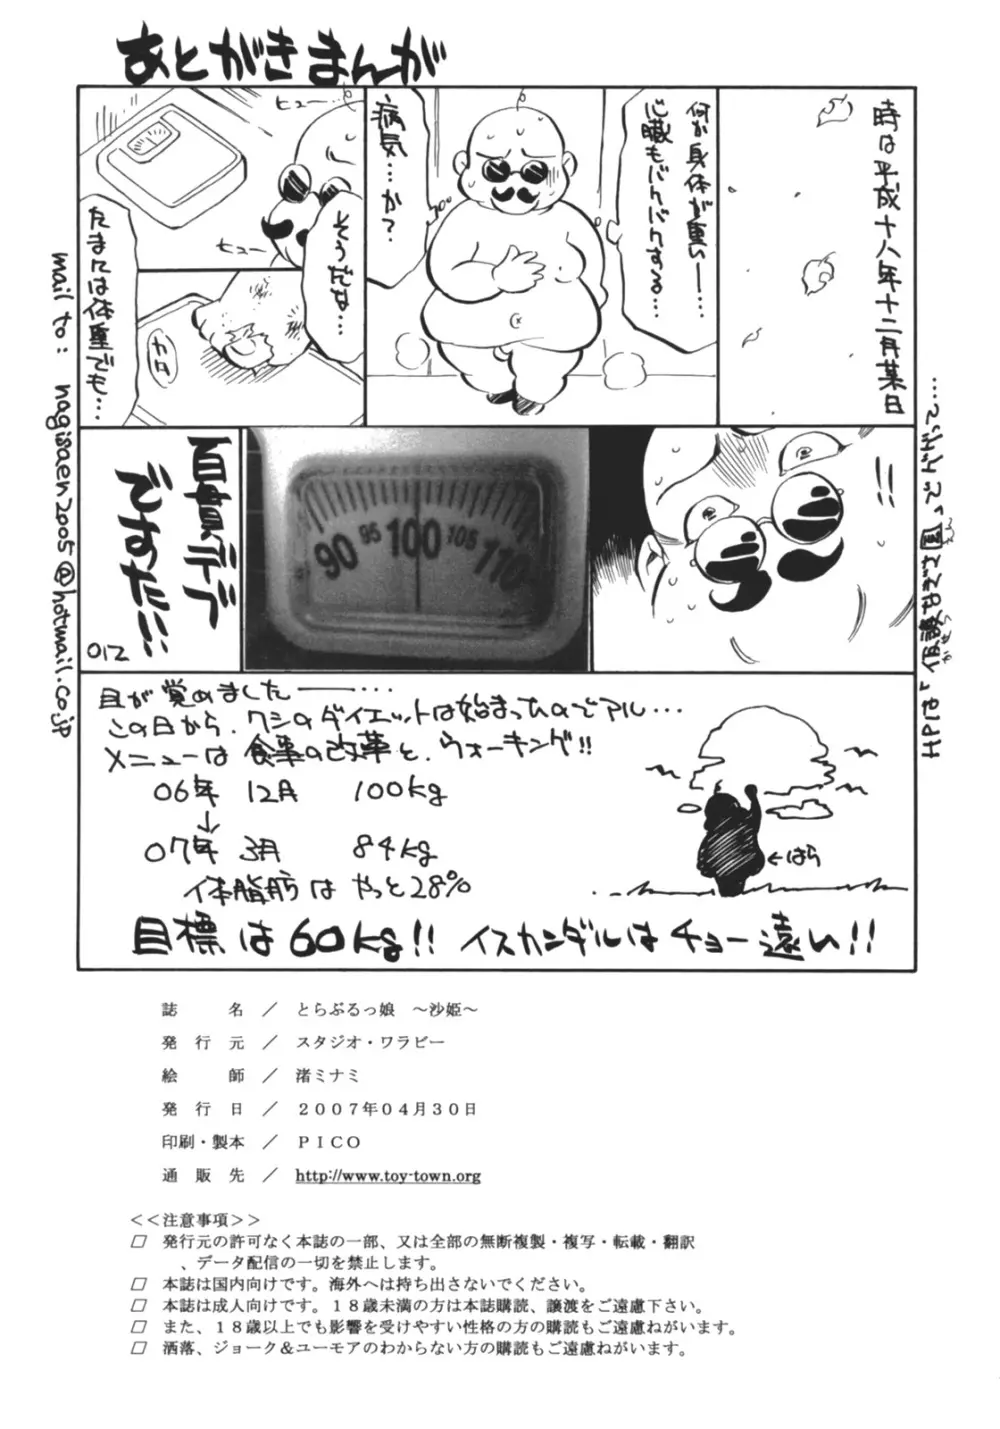 あとがきまんが
時は平成十八年十二月某日
何か身体が重い――…
心臓もバクバクする…
病気…か?
ヒュー…
ヒュー
そうだな…
たまには体重でも…
カタ
!!
90 95 100 105 110
百貫デブ
ですた!!!
012
目が覚めました――…
この日から、ワシのダイエットは始まったのでアル…
メニューは食事の改革と、ウォーキング!!
06年 12月 100kg
↓
07年 3月 84kg
体脂肪は やっと28%
←はら
目標は60kg!! イスカンダルはチョー遠い!!
mail to: nagisaen2005@hotmail.co.jp
誌名／とらぶるっ娘 ～沙姫～
発行元／スタジオ・ワラビー
絵師／渚ミナミ
発行日／２００７年０４月３０日
印刷・製本／ＰＩＣＯ
通販先／http://www.toy-town.org
＜＜注意事項＞＞
□ 発行元の許可なく本誌の一部、又は全部の無断複製・複写・転載・翻訳
、データ配信の一切を禁止します。
□ 本誌は国内向けです。海外へは持ち出さないでください。
□ 本誌は成人向けです。１８歳未満の方は本誌購読、譲渡をご遠慮下さい。
□ また、１８歳以上でも影響を受けやすい性格の方の購読もご遠慮ねがいます。
□ 洒落、ジョーク＆ユーモアのわからない方の購読もご遠慮ねがいます。